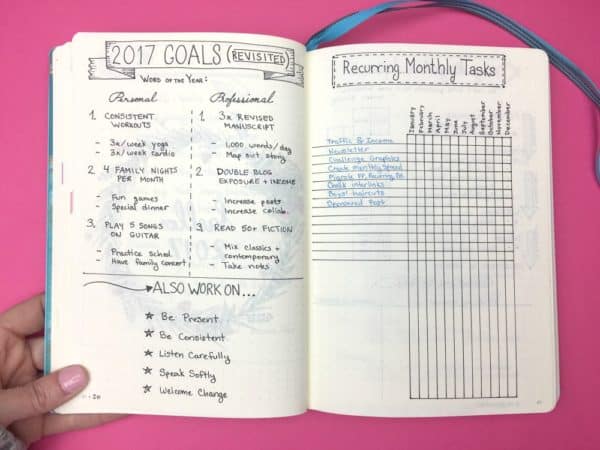 2017 GOALS (REVISITED)
WORD OF THE YEAR:
Personal
1. CONSISTENT
WORKOUTS
- 3x/week yoga
- 3x/week cardio
2. 4 FAMILY NIGHTS
PER MONTH
- Fun games
- Special dinner
3. PLAY 5 SONGS
ON GUITAR
- Practice sched.
- Have family concert
Professional
1. 3x REVISED
MANUSCRIPT
- 1,000 words/day
- Map out story
2. DOUBLE BLOG
EXPOSURE + INCOME
- Increase posts
- Increase collab.
3. READ 50+ FICTION
- Mix classics +
contemporary
- Take notes
ALSO WORK ON...
★ Be Present
★ Be Consistent
★ Listen Carefully
★ Speak Softly
★ Welcome Change
Recurring Monthly Tasks
January
February
March
April
May
June
July
August
September
October
November
December
Traffic & Income
Newsletter
Challenge Graphics
Create Monthly Spread
Migrate FP, Recurring,
Chalk interlinks
Boys' haircuts
Sponsored Post